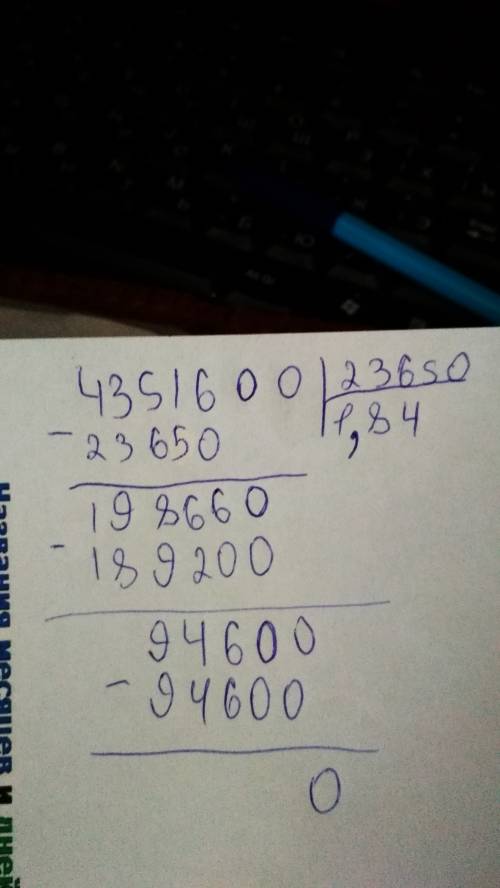 4351600 23650
- 23650 1,84
198660
- 189200
94600
- 94600
0
Названия месяцев и дней